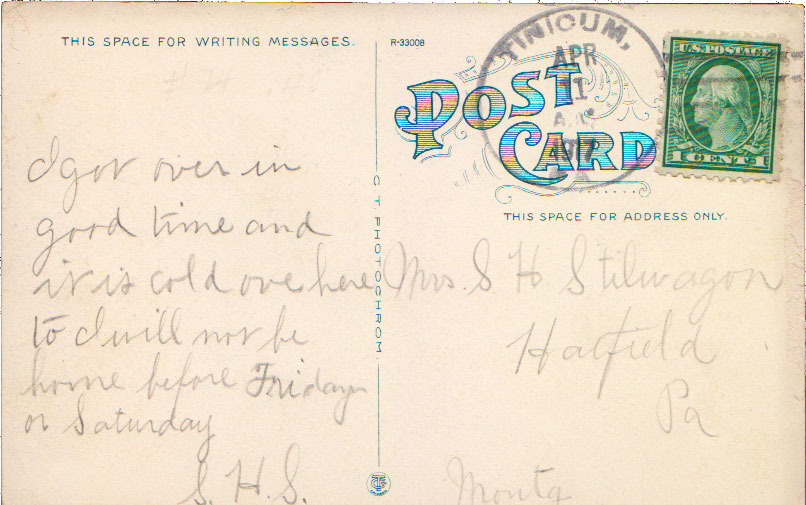 THIS SPACE FOR WRITING MESSAGES.
I got over in
good time and
it is cold over here
to I will not be
home before Friday
or Saturday
S. H. S.
C T PHOTOCHROM
R-33008
TINICUM,
APR
11
A.M.
PA
POST CARD
U.S. POSTAGE
1 CENT 1
THIS SPACE FOR ADDRESS ONLY.
Mrs. S H Stilwagon
Hatfield
Pa
Montg